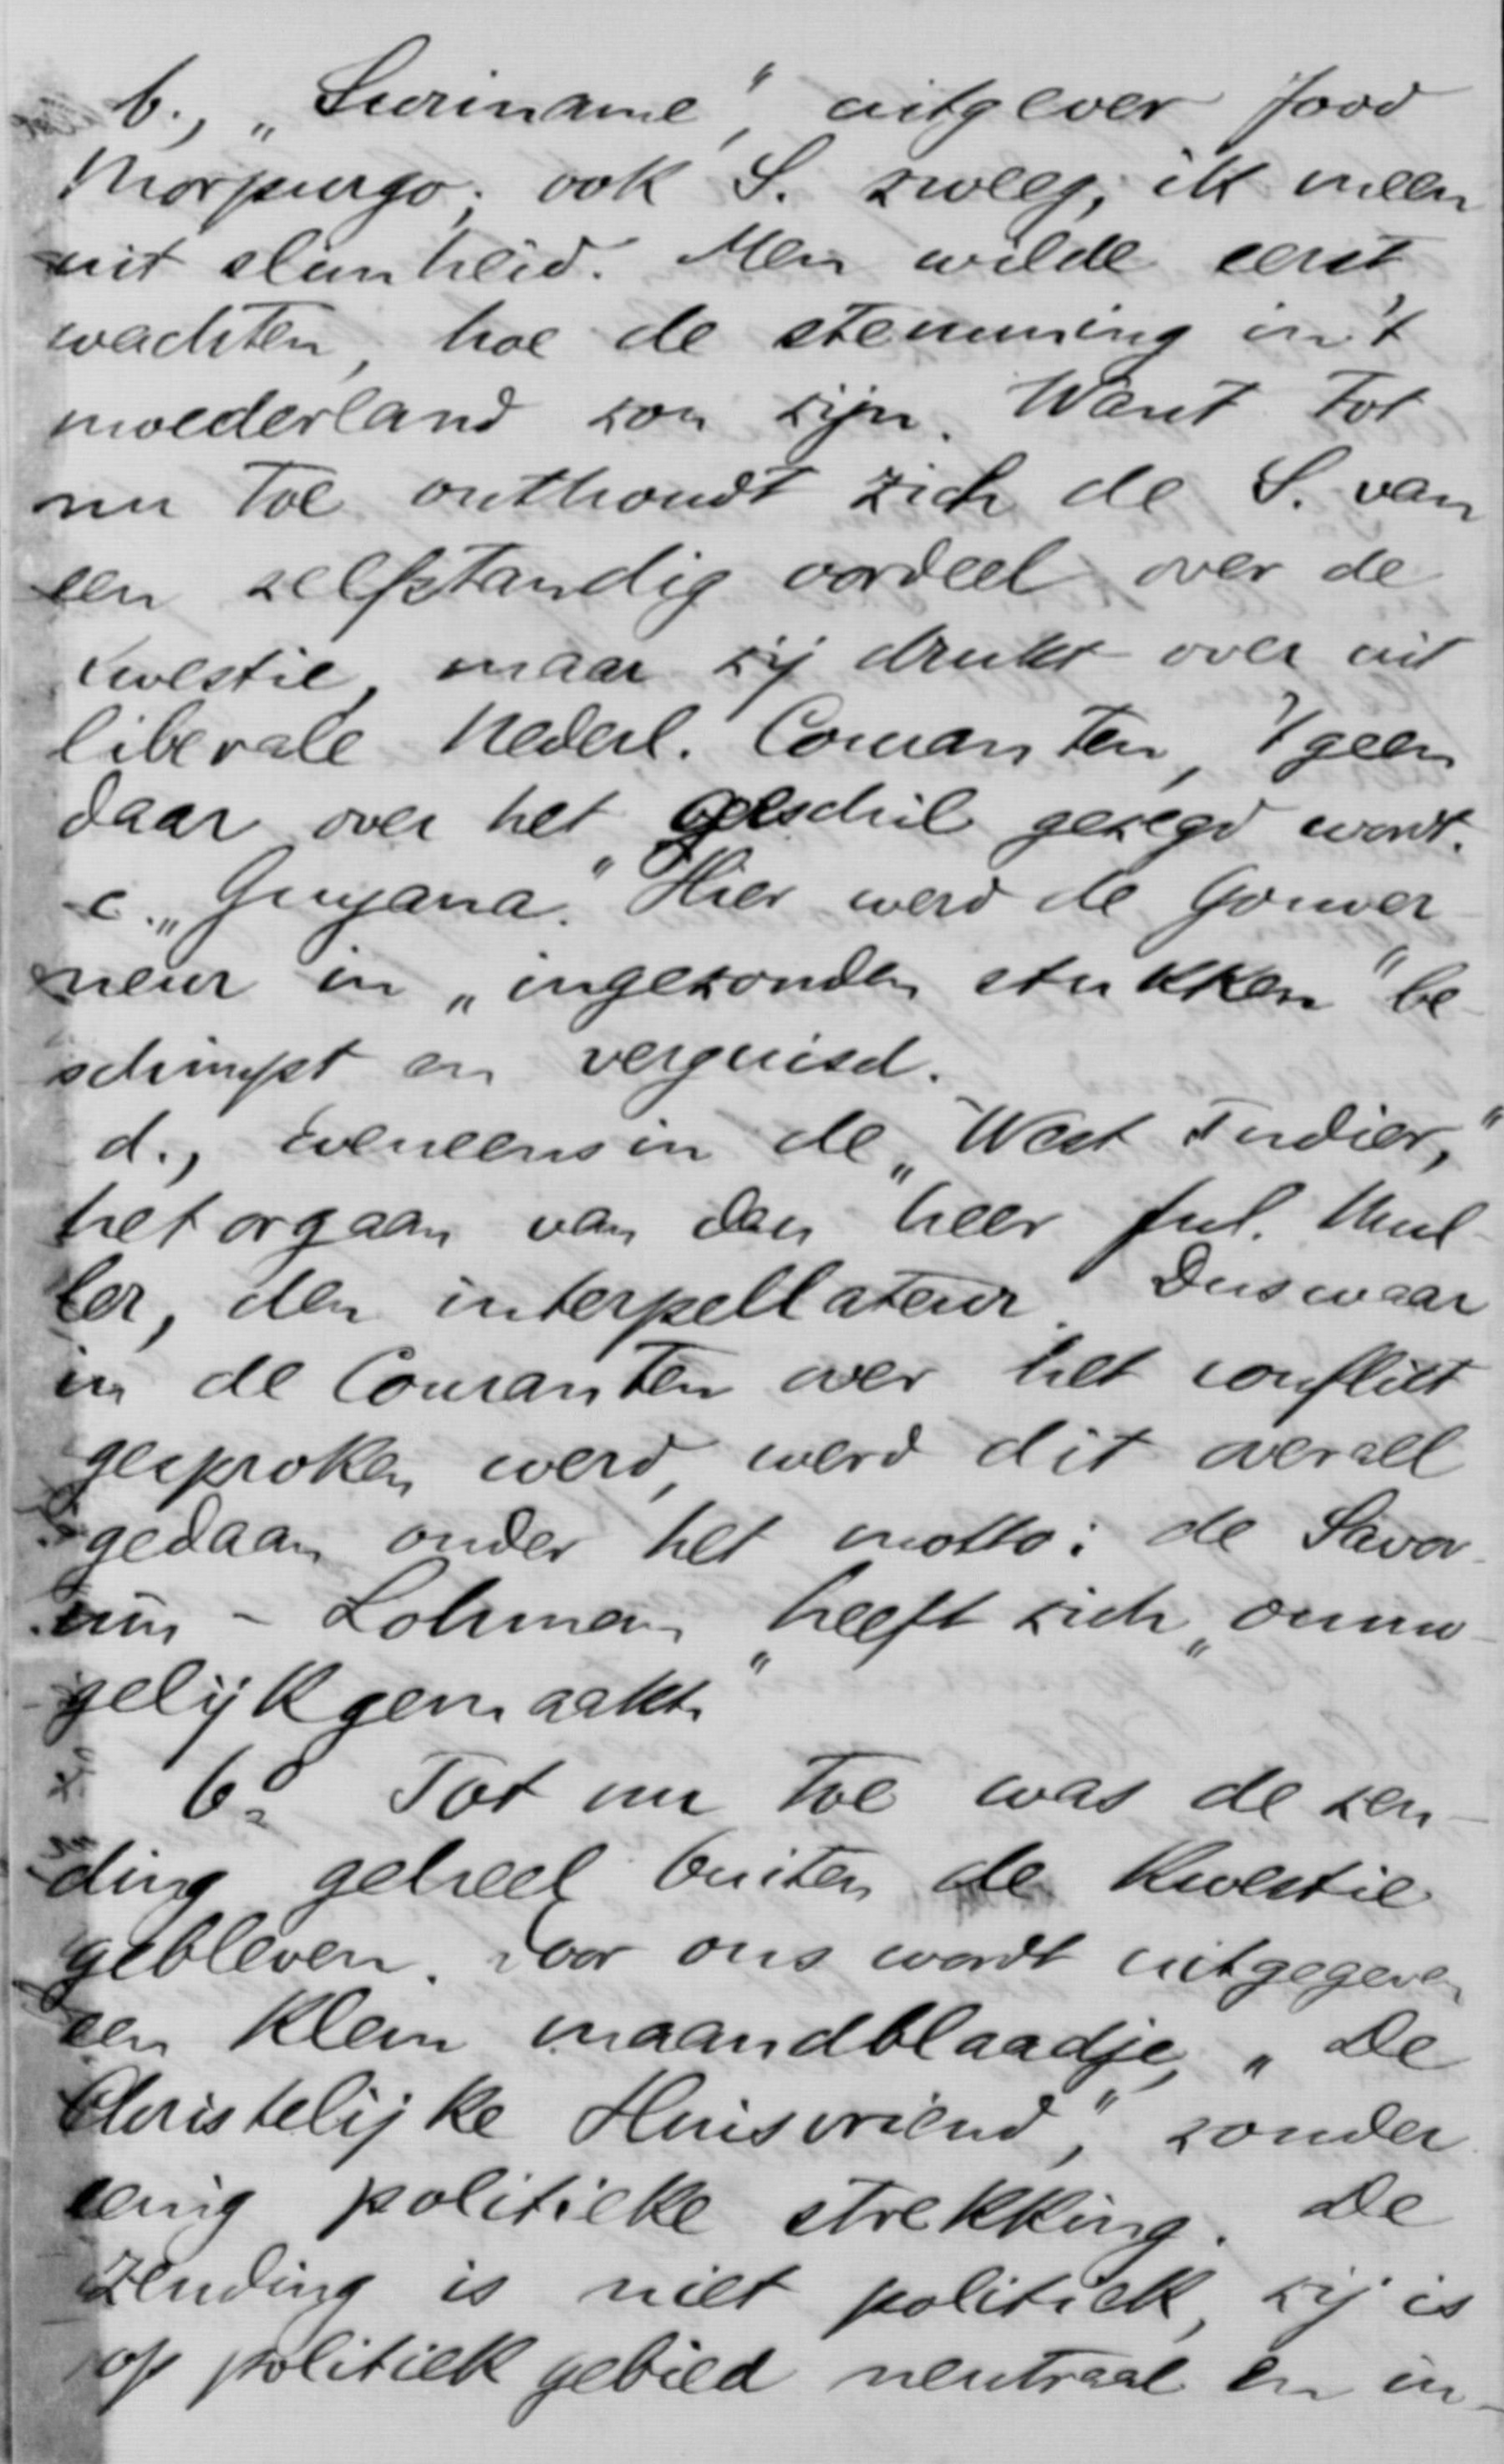 b., „Suriname", uitgever Jood
Morpurgo; ook S. zweeg, ik meen
uit slimheid. Men wilde eerst
wachten, hoe de stemming in 't
moederland zou zijn. Want tot
nu toe onthoudt zich de S. van
een zelfstandig oordeel over de
kwestie, maar zij drukt over uit
liberale Nederl. Couranten, 't geen
daar over het geschil gezegd wordt.
c. „Guyana." Hier werd de Gouver-
neur in „ingezonden stukken" be-
schimpt en verguisd.
d., Eveneens in de „West Indier,"
het orgaan van den heer Jul. Mul-
ler, den interpellateur. Dus waar
in de Couranten over het conflict
gesproken werd, werd dit overal
gedaan onder het motto: de Savor-
nin - Lohman heeft zich „onmo-
gelijk gemaakt."
6o Tot nu toe was de zen-
ding geheel buiten de kwestie
gebleven. Door ons wordt uitgegeven
een klein maandblaadje, „De
Christelijke Huisvriend", zonder
eenig politieke strekking. De
Zending is niet politiek, zij is
op politiek gebied neutraal en in-